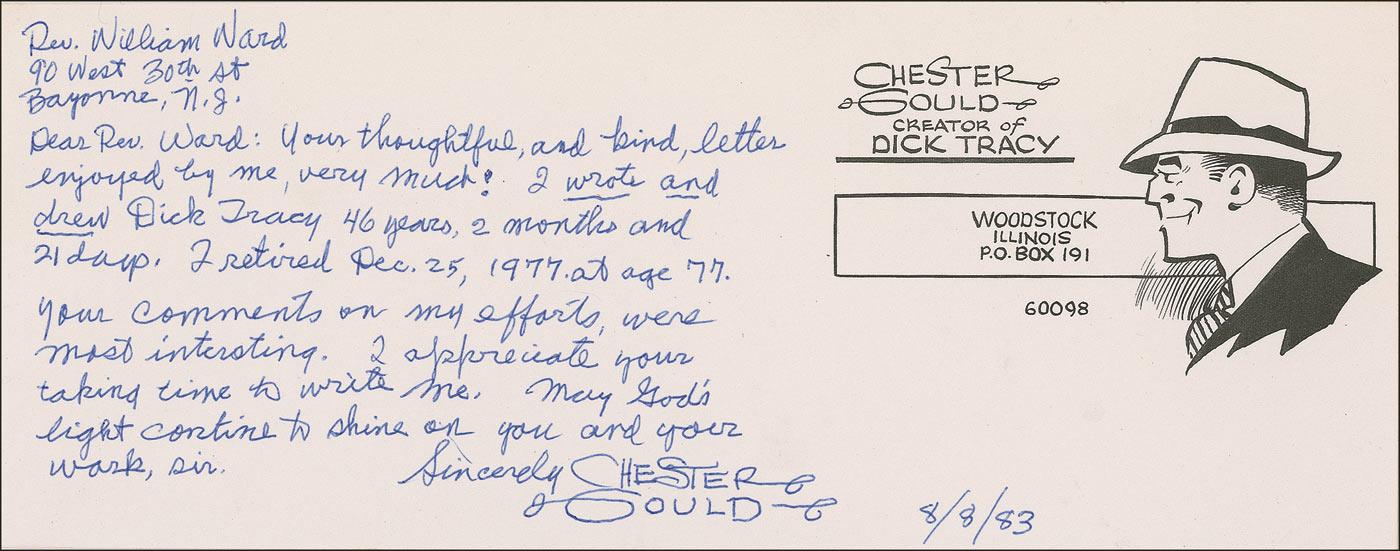 Rev. William Ward
90 West 30th St
Bayonne, N.J.
Dear Rev. Ward: Your thoughtful, and kind, letter
enjoyed by me, very much! I wrote and
drew Dick Tracy 46 years, 2 months and
21 days. I retired Dec. 25, 1977. at age 77.
Your comments on my efforts, were
most intersting. I appreciate your
taking time to write me. May God's
light contine to shine on you and your
work, sir.
Sincerely CHESTER
GOULD
8/8/83
CHESTER
GOULD
CREATOR of
DICK TRACY
WOODSTOCK
ILLINOIS
P.O. BOX 191
60098